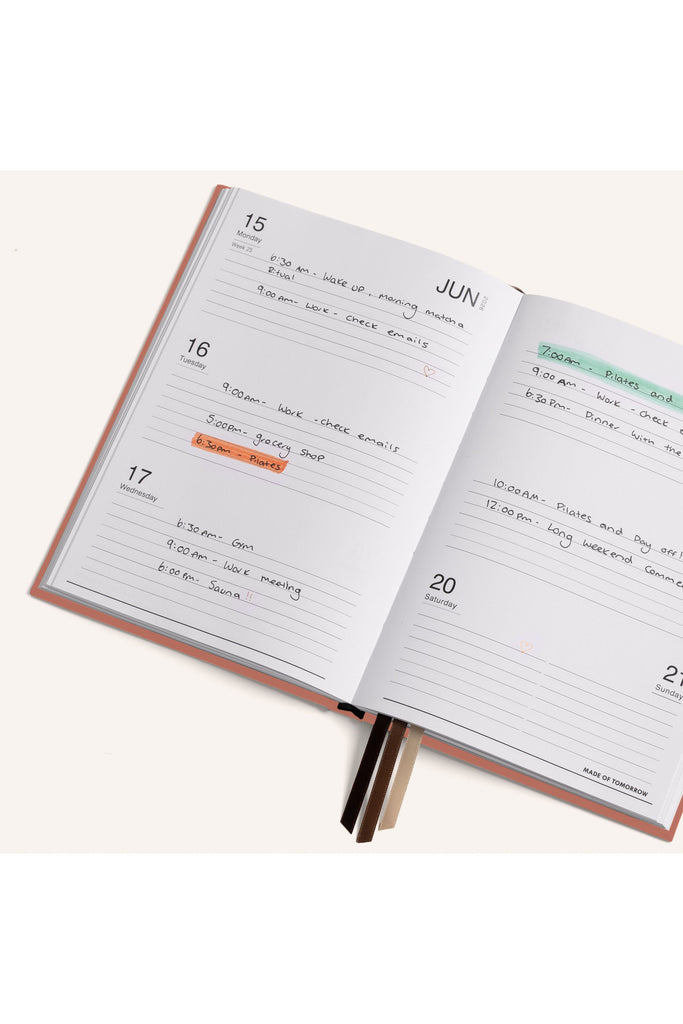 15
Monday
Week 25
JUN 2026
6:30 AM - Wake up, morning matcha
Ritual
9:00 AM - Work - check emails
16
Tuesday
9:00AM - Work - check emails
5:00PM - grocery shop
6:30PM - Pilates
17
Wednesday
6:30AM - Gym
9:00AM - Work meeting
6:00PM - Sauna !!
7:00AM - Pilates and
9:00 AM - Work - Check
6:30PM - Dinner with the
10:00AM - Pilates and Day off!
12:00PM - Long weekend
20
Saturday
21
Sunday
MADE OF TOMORROW